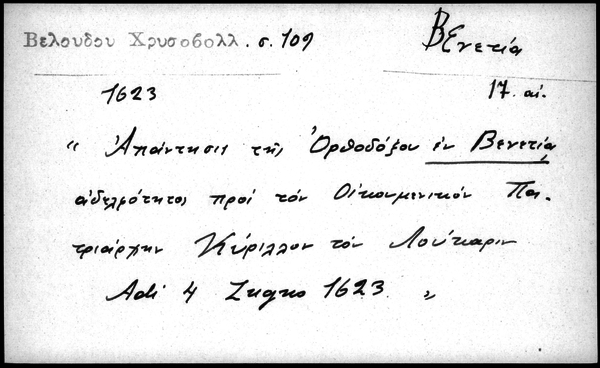 Βελουδου Χρυσοβολλ. σ. 109
Βενετία
1623
17. αἰ.
“ Ἀπάντησις τῆς Ὀρθοδόξου ἐν Βενετίᾳ
ἀδελφότητος πρὸς τὸν Οἰκουμενικὸν Πα-
τριάρχην Κύριλλον τὸν Λούκαριν
Adi 4 Zugno 1623. „